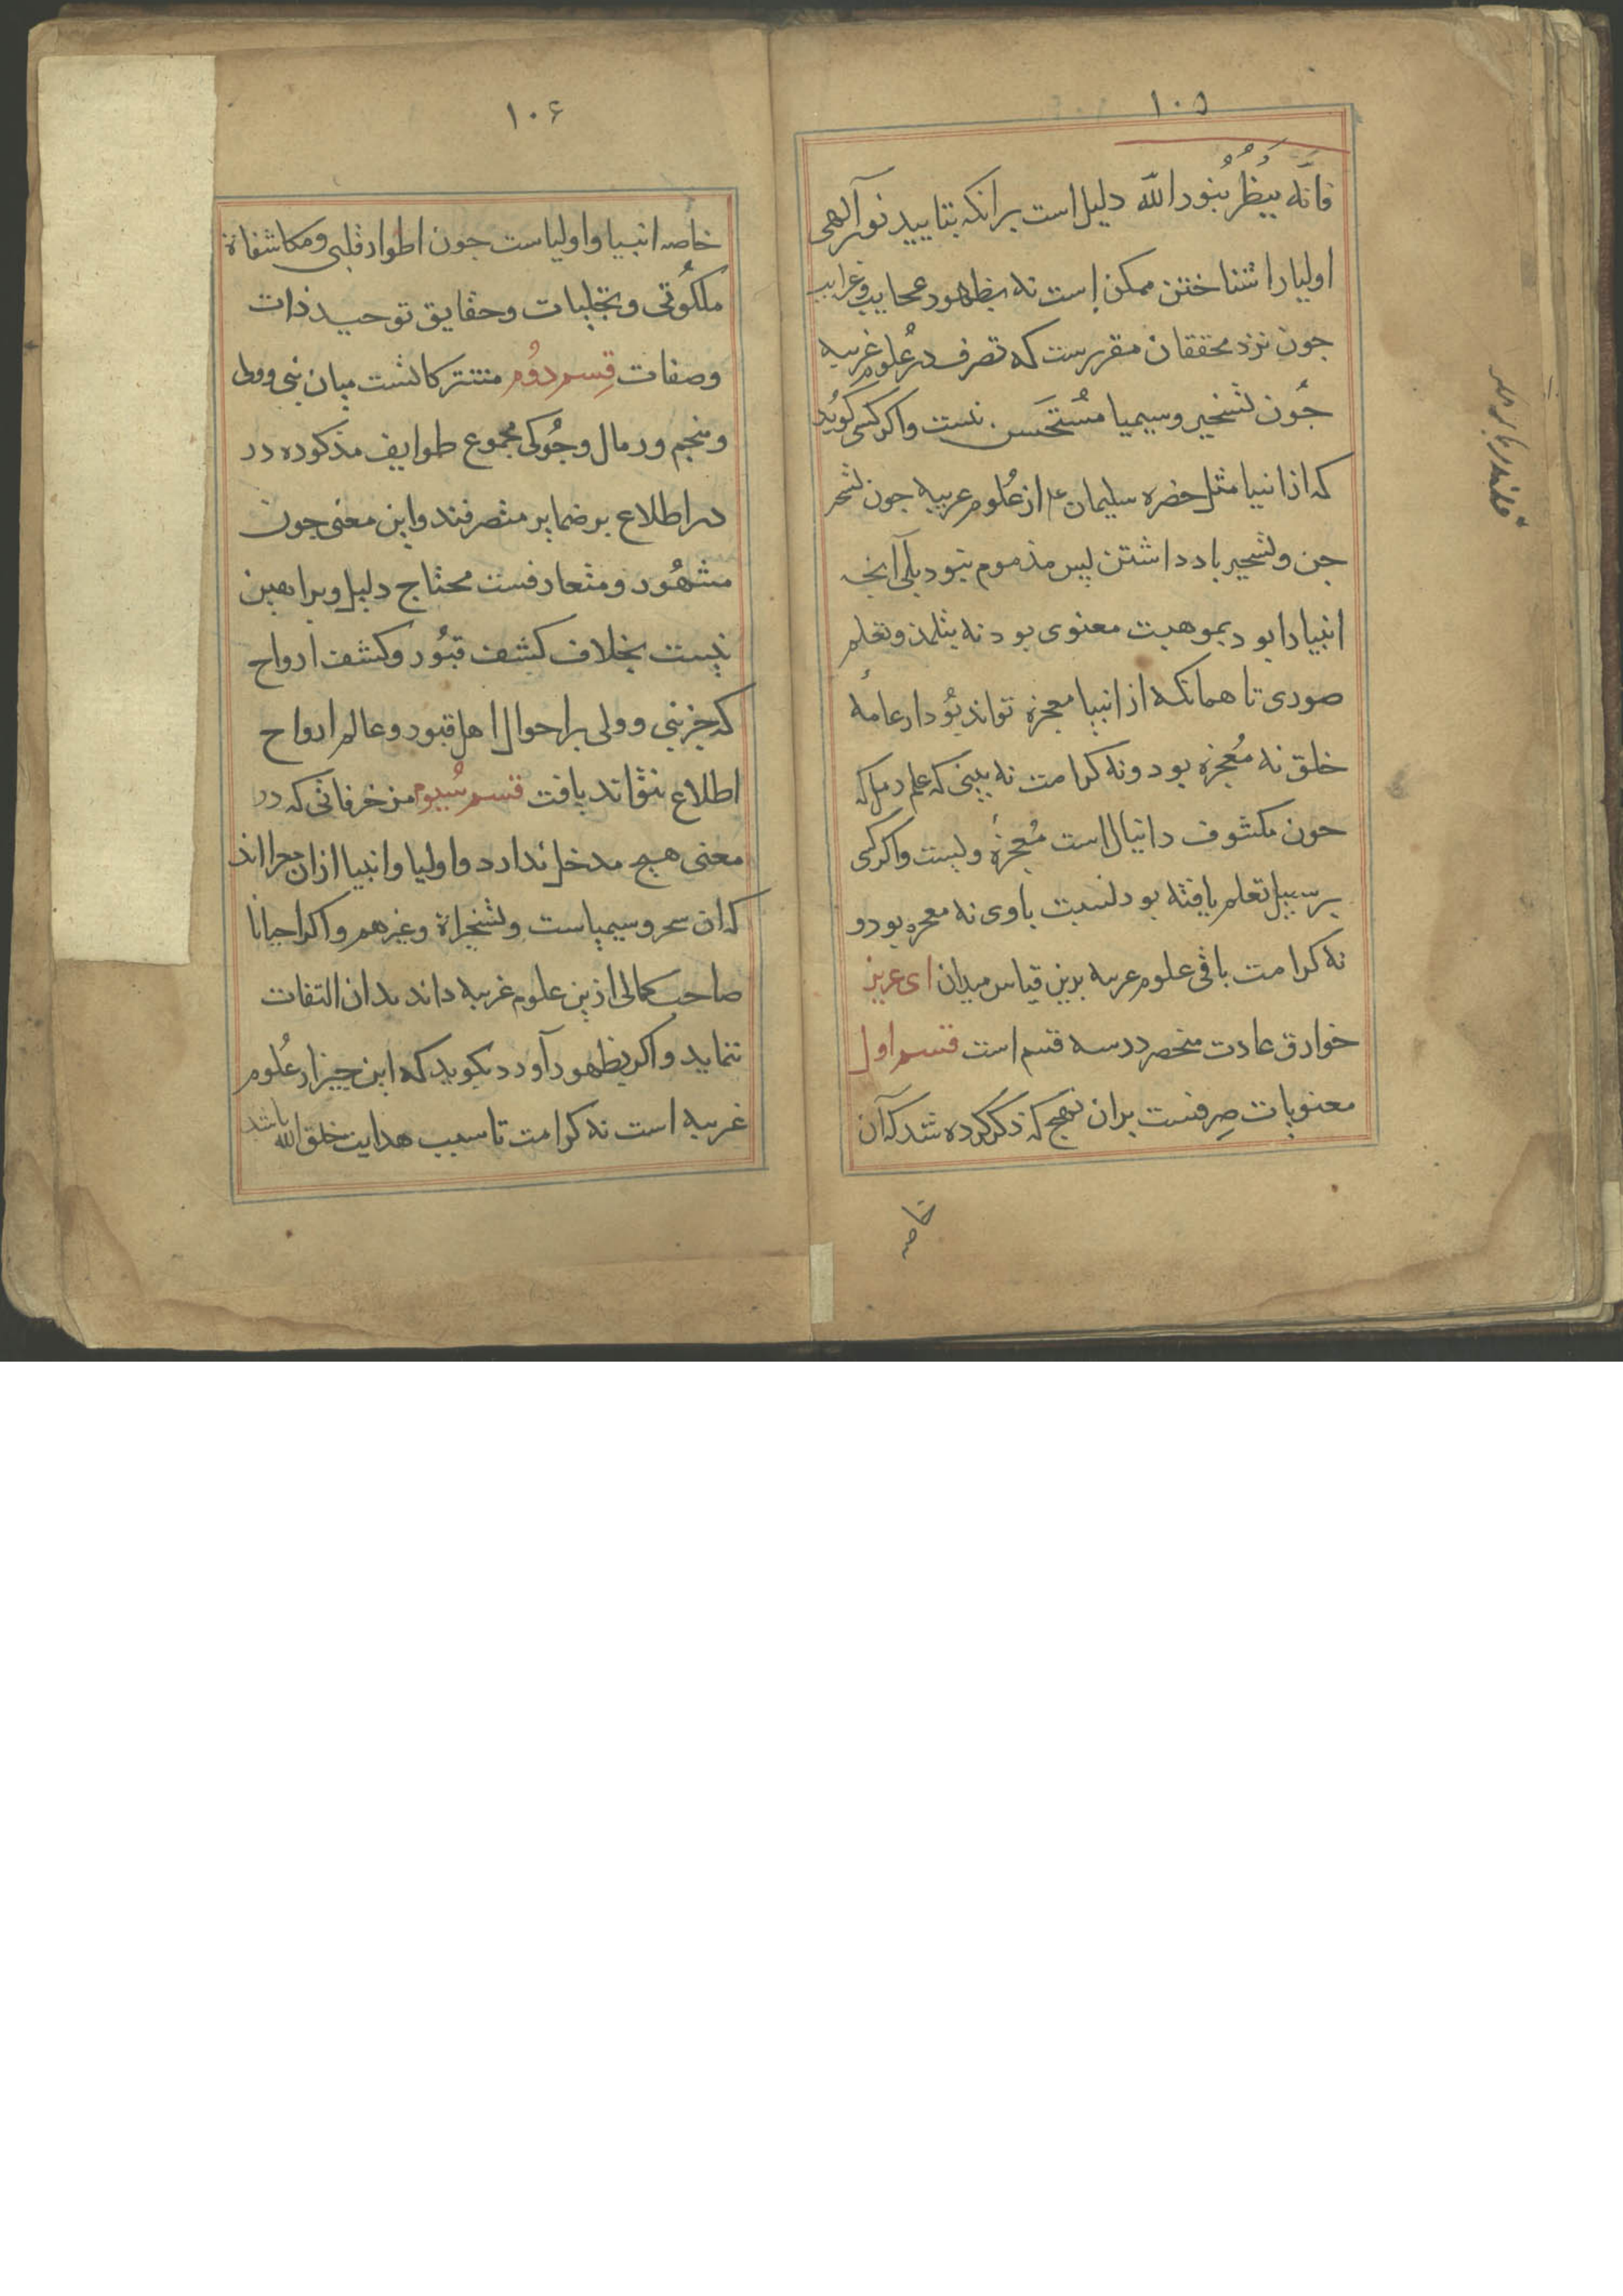 ١٠٥
فانّه يَنظُرُ بُنورالله دليل است برانكه بتاييد نور آلهى
اوليا را شناختن ممكن است نه بظهور عجايب و غرايب
جون نزد محققان مقررست كه تصرف در عُلوم غريبه
جُون تسخير و سيميا مُستَحَسن نست و اكر كسى كوُيد
كه از انبيا مثل حضره سليمان ع از عُلوم غريبه جون تسخر
جن و تسخير باد داشتن پس مذموم نبود بلى آنجه
انبيا را بود بموهبت معنوى بود نه بتلمذ و تعلم
صورى تا همانكه از انبيا معجزه تواند بُود از عامهٔ
خلق نه مُعجزه بود و نه كرامت نه بينى كه علم رمل كه
جون مكشوف دانيال است مُعجزهٔ ويست و اكر كسى
بر سبيل تعلم يافته بود نسبت باوى نه معجزه بود و
نه كرامت باقى علوم غربيه بدين قياس ميدان اى عزيز
خوارق عادت منحصر در سه قسم است قسم اول
معنويات صِرفست بران نهج كه ذكر كرده شد كه آن
خاصه
١٠۶
خاصه انبيا و اولياست جون اطوار قلبى و مكاشفاة
ملكُوتى و تجليات و حقايق توحيد ذات
و صفات قِسم دوُم مشتركاتست ميان نبى و ولى
و منجم و رمال و جُوكى مجموع طوايف مذكوره در
در اطلاع بر ضماير متصرفند و اين معنى جون
مشهُور و متعارفست محتاج دليل و براهين
نيست بخلاف كشف قبُور و كشف ارواح
كه جز نبى و ولى بر احوال اهل قبور و عالم ارواح
اطلاع نتواند يافت قسم سُيوم مزخرفاتى كه در
معنى هيچ مدخل ندارد و اوليا و انبيا ازان مبرااند
كه ان سحر و سيمياست و تسخيراة و غيرهم و اكر احيانا
صاحب كمالى ازين علوم غريبه داند بدان التفات
ننمايد و اكر بظهور آورد بكويد كه اين جيز از عُلوم
غريبه است نه كرامت تا سبب هدايت خلق الله باشد